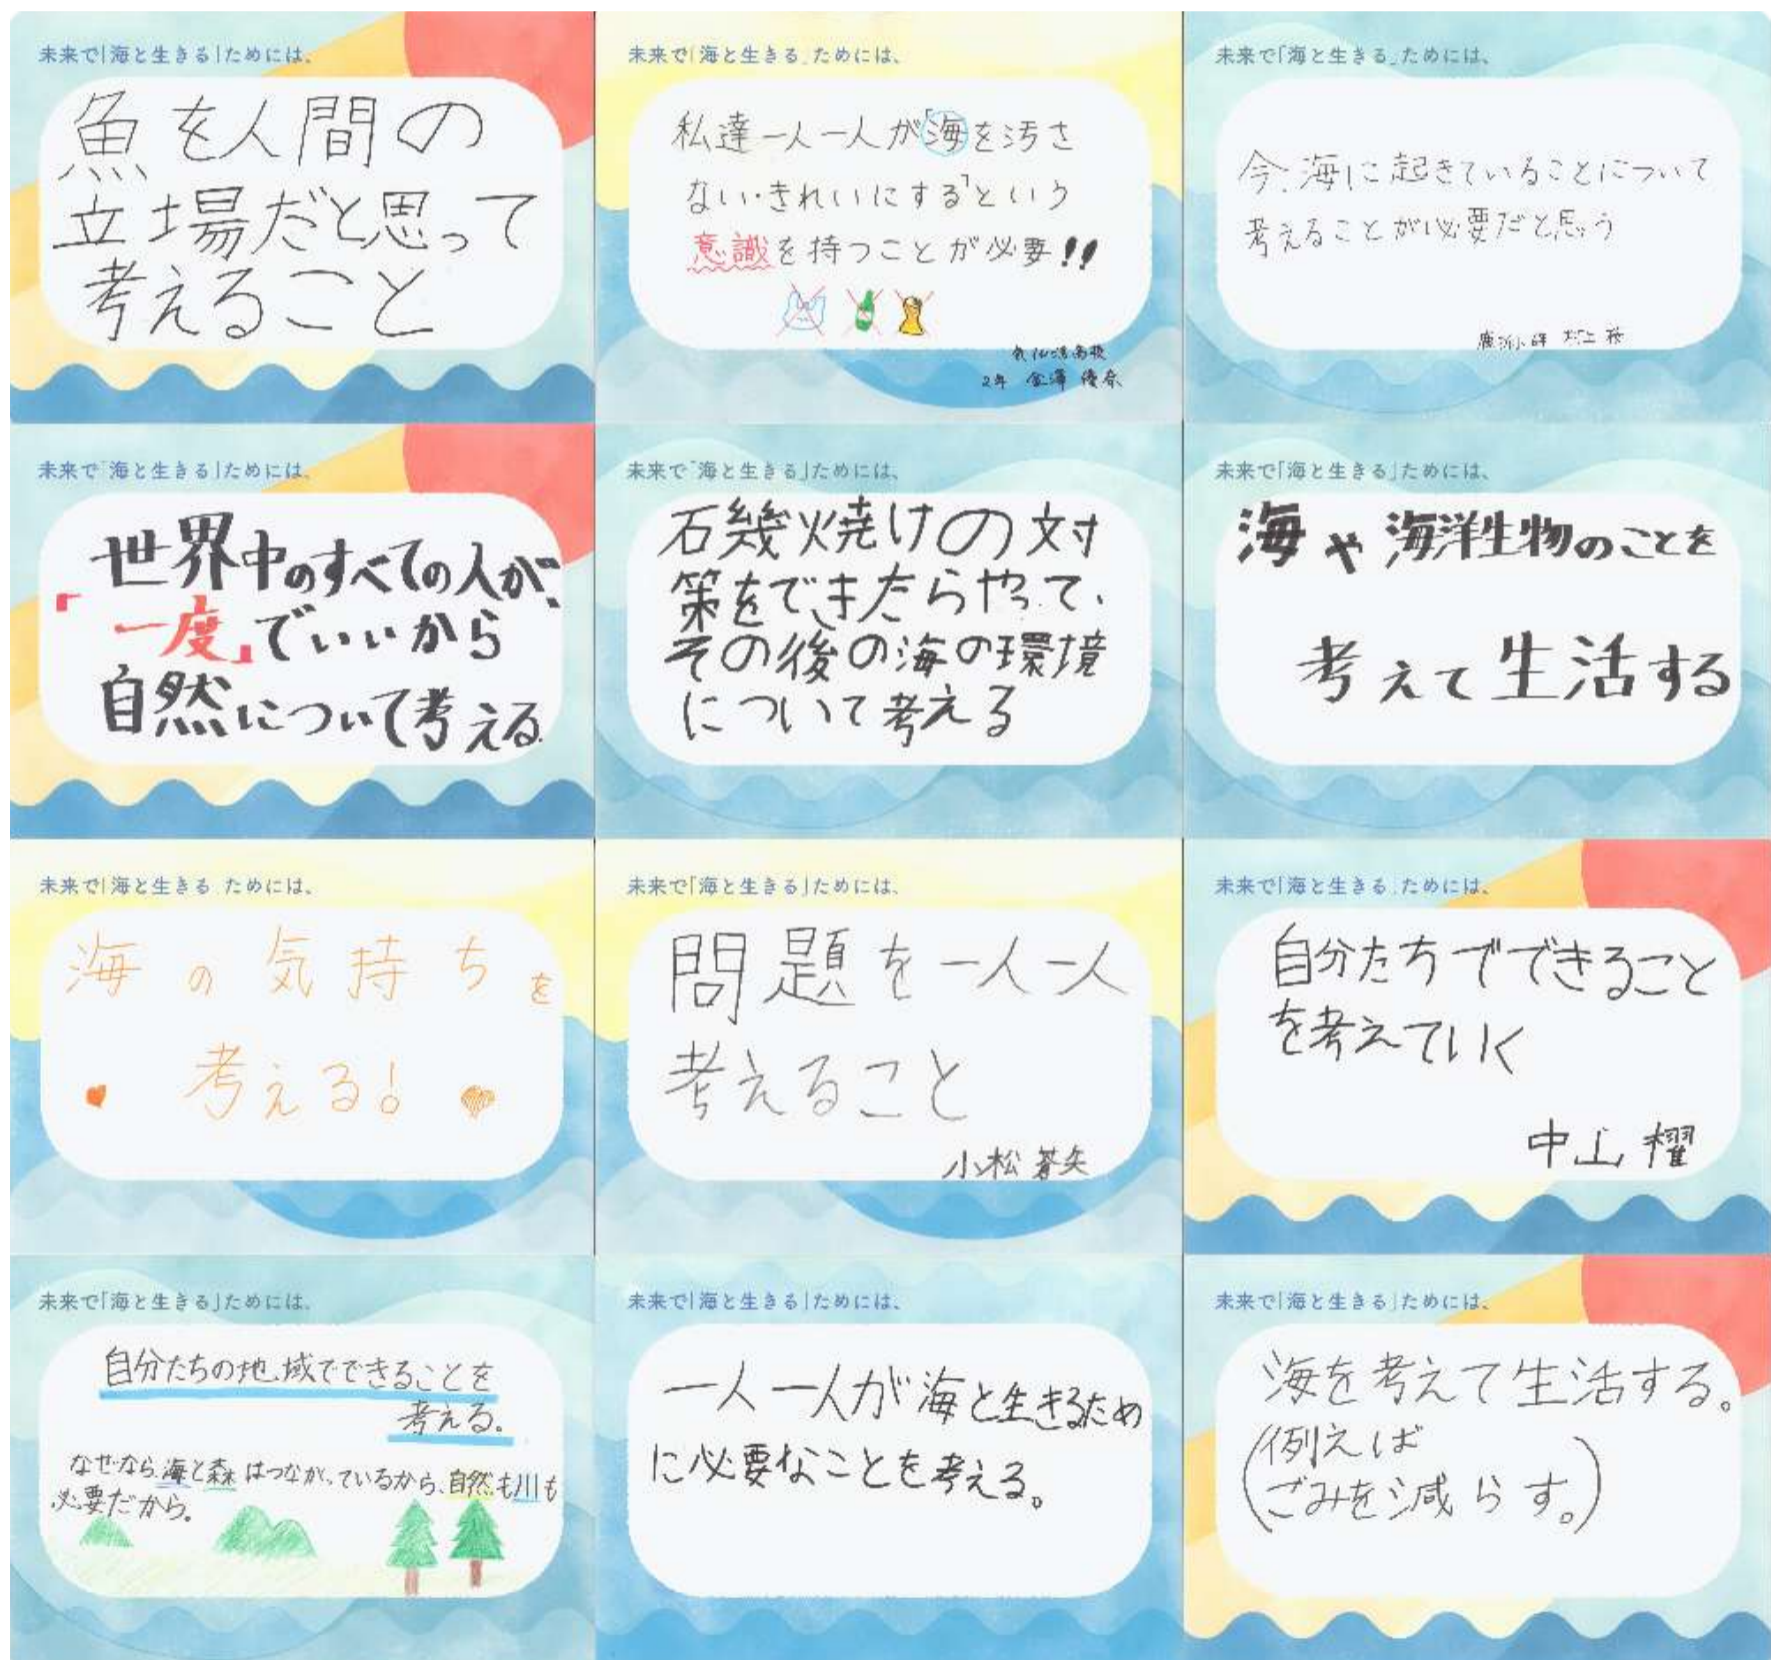 未来で「海と生きる」ためには、
魚を人間の
立場だと思って
考えること
未来で「海と生きる」ためには、
私達一人一人が「海を汚さ
ない・きれいにする」という
意識を持つことが必要!!
気仙沼高校
2年 金澤 優奈
未来で「海と生きる」ためには、
今、海に起きていることについて
考えることが必要だと思う
村上
未来で「海と生きる」ためには、
世界中のすべての人が、
「一度」でいいから
自然について考える
未来で「海と生きる」ためには、
石幾焼けの対
策をできたらやって、
その後の海の環境
について考える
未来で「海と生きる」ためには、
海や海洋生物のことを
考えて生活する
未来で「海と生きる」ためには、
海の気持ちを
考える!
未来で「海と生きる」ためには、
問題を一人一人
考えること
小松
未来で「海と生きる」ためには、
自分たちでできること
を考えていく
中山 櫂
未来で「海と生きる」ためには、
自分たちの地域でできることを
考える。
なぜなら、海と森はつながっているから、自然も川も
必要だから。
未来で「海と生きる」ためには、
一人一人が海と生きるため
に必要なことを考える。
未来で「海と生きる」ためには、
海を考えて生活する。
(例えば
ごみを減らす。)